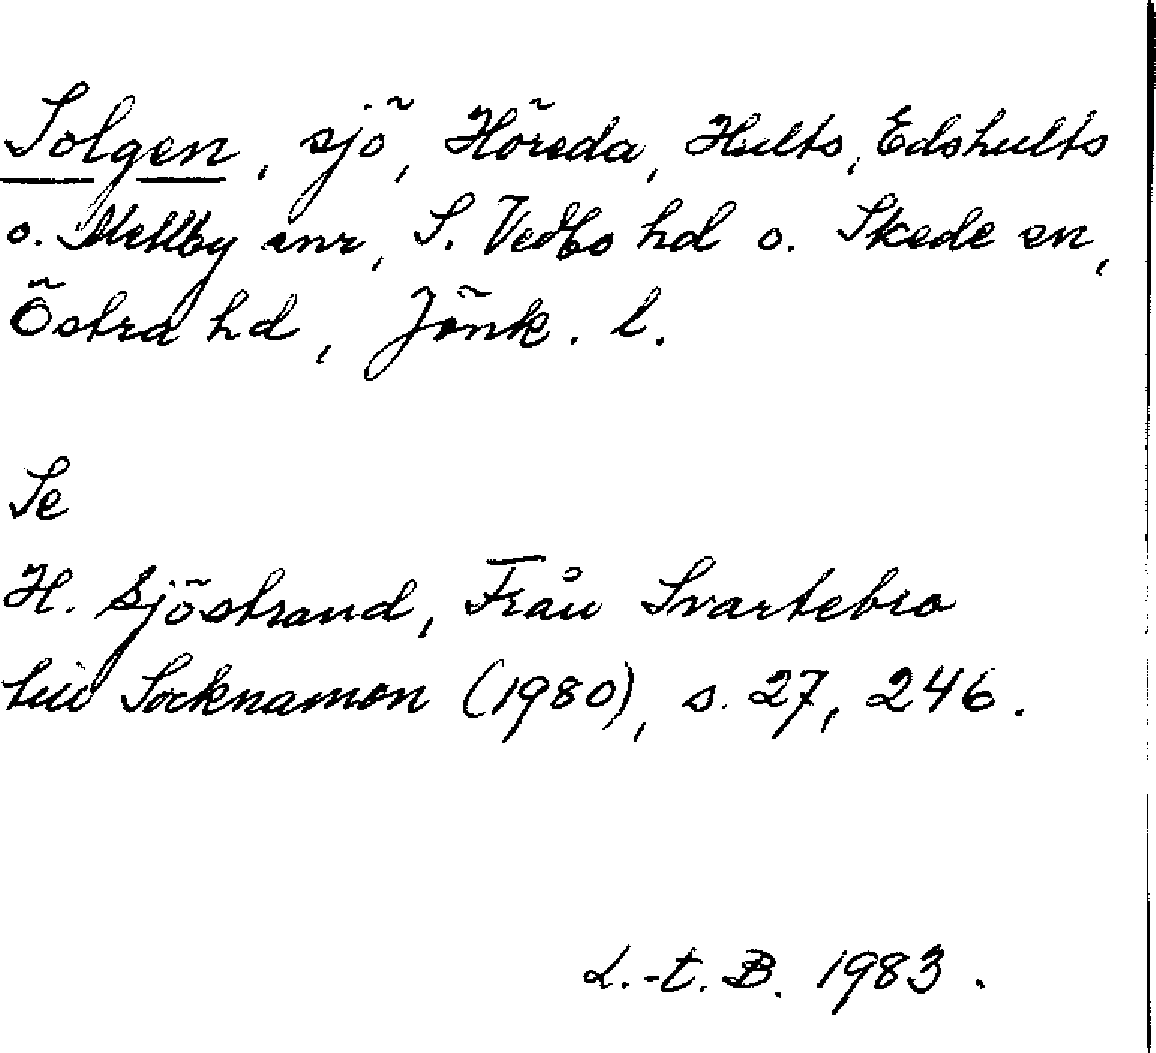 Solgen, sjö, Höreda, Hults, Edshults
o. Mellby snr, S. Vedbo hd o. Skede sn,
Östra hd, Jönk. l.
Se
H. Sjöstrand, Från Svartebro
till Socknamon (1980), s. 27, 246.
L.-t. B. 1983.